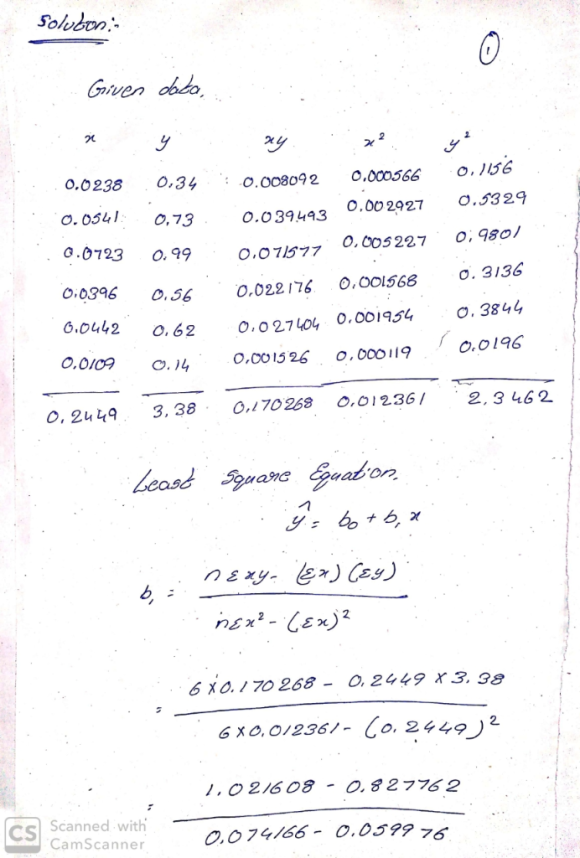 Soluton:-
1
Given data.
x y xy x² y²
0.0238 0.34 0.008092 0.000566 0.1156
0.0541 0.73 0.039493 0.002927 0.5329
0.0723 0.99 0.071577 0.005227 0.9801
0.0396 0.56 0.022176 0.001568 0.3136
0.0442 0.62 0.027404 0.001954 0.3844
0.0109 0.14 0.001526 0.000119 0.0196
0.2449 3.38 0.170268 0.012361 2.3462
Least Square Equation.
ŷ = b₀ + b₁ x
b₁ = nΣxy - (Σx)(Σy)
nΣx² - (Σx)²
= 6×0.170268 - 0.2449 × 3.38
6×0.012361 - (0.2449)²
= 1.021608 - 0.827762
0.074166 - 0.059976
CS Scanned with
CamScanner